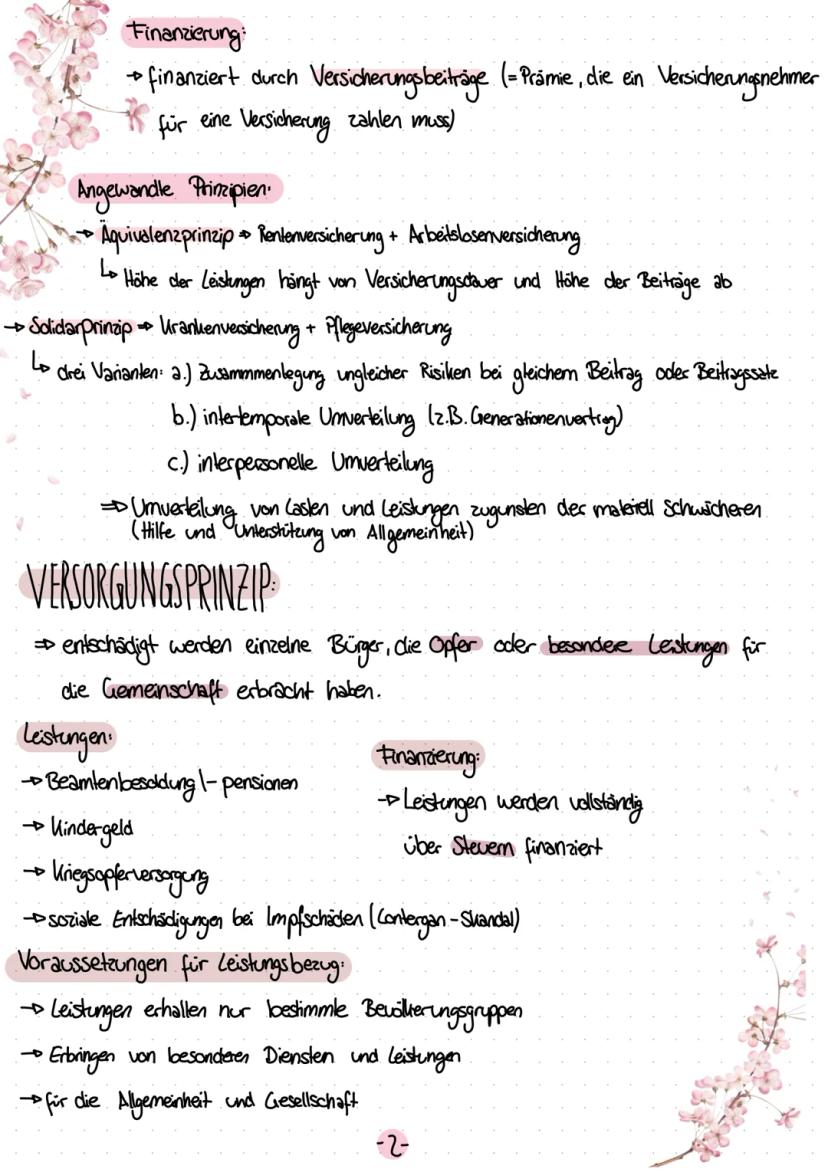 Finanzierung:
→ finanziert durch Versicherungsbeiträge (= Prämie, die ein Versicherungsnehmer
für eine Versicherung zahlen muss)
Angewandte Prinzipien:
→ Äquivalenzprinzip ⇒ Rentenversicherung + Arbeitslosenversicherung
↳ Höhe der Leistungen hängt von Versicherungsdauer und Höhe der Beiträge ab
→ Solidarprinzip ⇒ Krankenversicherung + Pflegeversicherung
↳ drei Varianten: a.) Zusammmenlegung ungleicher Risiken bei gleichem Beitrag oder Beitragssatz
b.) intertemporale Umverteilung (z.B. Generationenvertrag)
c.) interpersonelle Umverteilung
⇒ Umverteilung von Lasten und Leistungen zugunsten der materiell Schwächeren
(Hilfe und Unterstützung von Allgemeinheit)
VERSORGUNGSPRINZIP:
⇒ entschädigt werden einzelne Bürger, die Opfer oder besondere Leistungen für
die Gemeinschaft erbracht haben.
Leistungen:
→ Beamtenbesoldung/-pensionen
→ Kindergeld
→ Kriegsopferversorgung
→ soziale Entschädigungen bei Impfschäden (Contergan-Skandal)
Finanzierung:
→ Leistungen werden vollständig
über Steuern finanziert
Voraussetzungen für Leistungsbezug:
→ Leistungen erhalten nur bestimmte Bevölkerungsgruppen
→ Erbringen von besonderen Diensten und Leistungen
→ für die Allgemeinheit und Gesellschaft
-2-